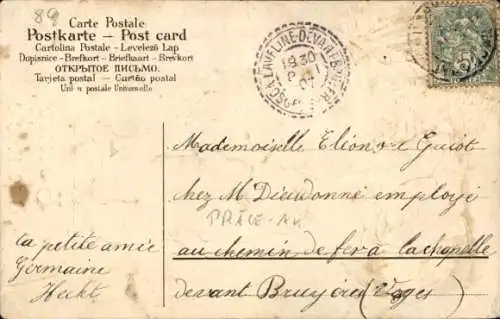 89
Carte Postale
Postkarte — Post card
Cartolina Postale - Levelező Lap
Dopisnice - Brefkort - Briefkaart - Brevkort
ОТКРЫТОЕ ПИСЬМО.
Tarjeta postal — Cartão postal
Union postale Universelle
LAVELINE-DEVANT-BRUYÈRES
1930
07
Mademoiselle Eléonore Guiot
chez M Dieudonné employé
PRACE-AK
au chemin de fer à lachapelle
devant Bruyères (Vosges)
ta petite amie
Germaine
Heckt